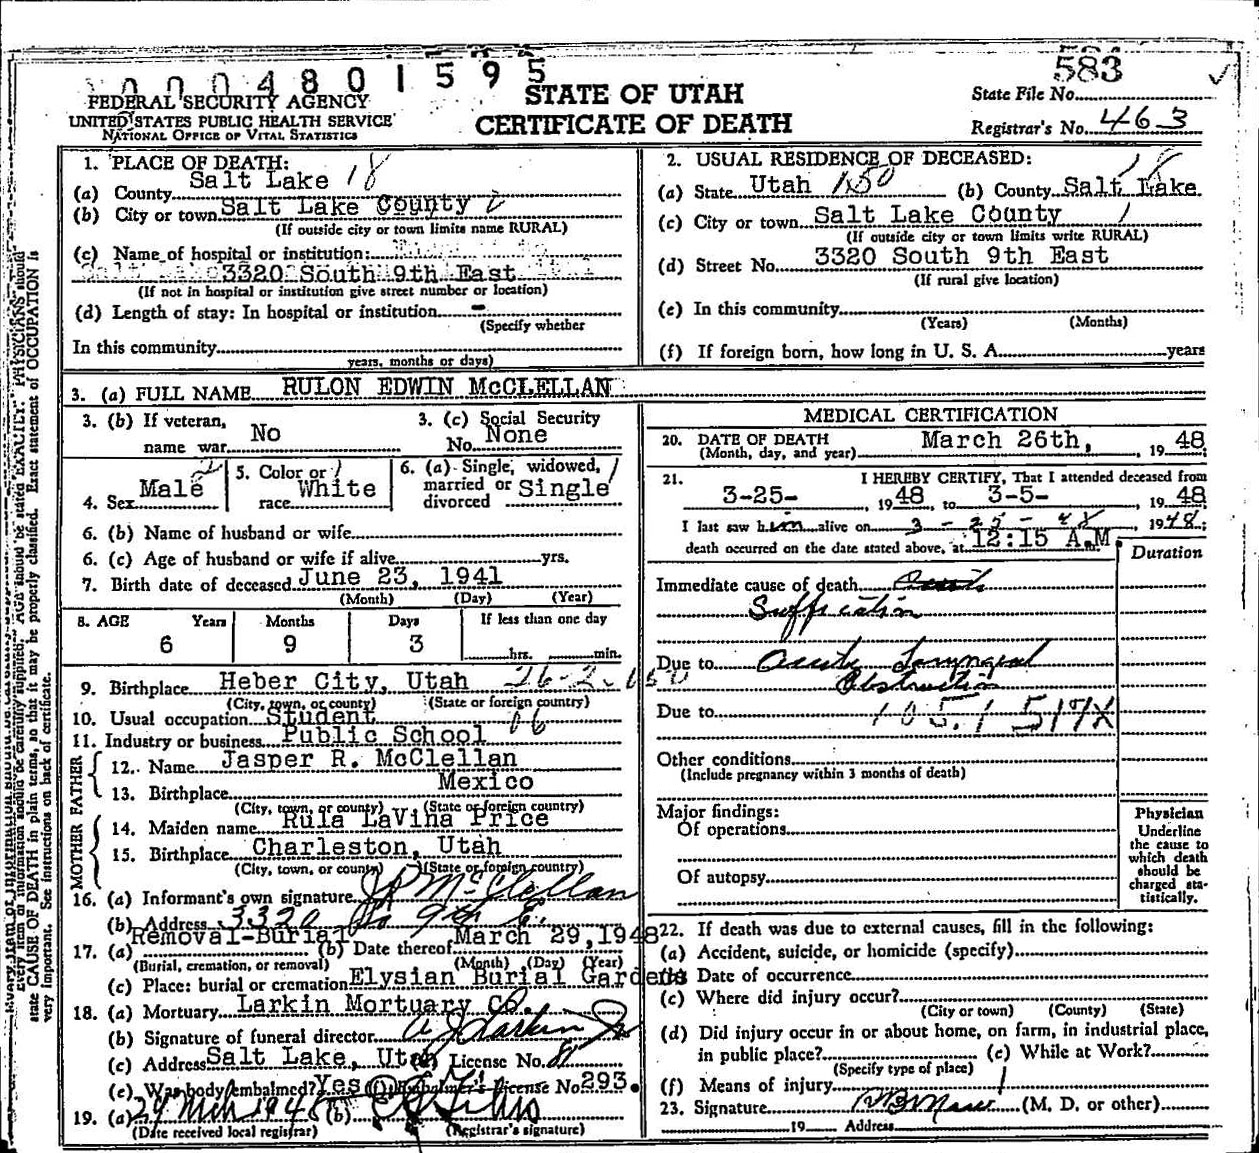 0004801595
583
FEDERAL SECURITY AGENCY
UNITED STATES PUBLIC HEALTH SERVICE
NATIONAL OFFICE OF VITAL STATISTICS
STATE OF UTAH
CERTIFICATE OF DEATH
State File No.
Registrar's No. 463
1. PLACE OF DEATH:
(a) County Salt Lake 18
(b) City or town Salt Lake County 2
(If outside city or town limits name RURAL)
(c) Name of hospital or institution:
3320 South 9th East
(If not in hospital or institution give street number or location)
(d) Length of stay: In hospital or institution -
(Specify whether
In this community
years, months or days)
2. USUAL RESIDENCE OF DECEASED: 18
(a) State Utah 150 (b) County Salt Lake
(c) City or town Salt Lake County 1
(If outside city or town limits write RURAL)
(d) Street No. 3320 South 9th East
(If rural give location)
(e) In this community
(Years) (Months)
(f) If foreign born, how long in U. S. A. years
3. (a) FULL NAME RULON EDWIN McCLELLAN
3. (b) If veteran,
name war No
3. (c) Social Security
No. None
4. Sex Male 2
5. Color or 1
race White
6. (a) Single, widowed, 1
married or
divorced Single
6. (b) Name of husband or wife
6. (c) Age of husband or wife if alive yrs.
7. Birth date of deceased June 23, 1941
(Month) (Day) (Year)
8. AGE Years Months Days If less than one day
6 9 3 hrs. min.
9. Birthplace Heber City, Utah 26-2
(City, town, or county) (State or foreign country)
10. Usual occupation Student
11. Industry or business Public School
FATHER
12. Name Jasper R. McClellan
13. Birthplace Mexico
(City, town, or county) (State or foreign country)
MOTHER
14. Maiden name Rula LaVina Price
15. Birthplace Charleston, Utah
(City, town, or county) (State or foreign country)
16. (a) Informant's own signature McClellan
(b) Address 3320 So 9th E.
17. (a) Removal-Burial (b) Date thereof March 29, 1948
(Burial, cremation, or removal) (Month) (Day) (Year)
(c) Place: burial or cremation Elysian Burial Gardens
18. (a) Mortuary Larkin Mortuary Co.
(b) Signature of funeral director A J Larkin Jr
(c) Address Salt Lake, Utah License No.
(e) Was body embalmed? Yes (f) Embalmer's License No. 293.
19. (a) (b)
(Date received local registrar) (Registrar's signature)
MEDICAL CERTIFICATION
20. DATE OF DEATH
(Month, day, and year) March 26th, , 19 48
21. I HEREBY CERTIFY, That I attended deceased from
3-25- , 19 48 to 3-5- , 19 48
I last saw him alive on 3 - 25 - 48 , 19 48;
death occurred on the date stated above, at 12:15 A.M.
Duration
Immediate cause of death
Suffication
Due to Acute Laryngeal
Obstruction
Due to 1051 517X
Other conditions
(Include pregnancy within 3 months of death)
Major findings:
Of operations
Of autopsy
Physician
Underline
the cause to
which death
should be
charged sta-
tistically.
22. If death was due to external causes, fill in the following:
(a) Accident, suicide, or homicide (specify)
Date of occurrence
(c) Where did injury occur?
(City or town) (County) (State)
(d) Did injury occur in or about home, on farm, in industrial place,
in public place? (e) While at Work?
(Specify type of place)
(f) Means of injury
23. Signature (M. D. or other)
19 Address
state CAUSE OF DEATH in plain terms, so that it may be properly classified. Exact statement of OCCUPATION is
very important. See instructions on back of certificate.